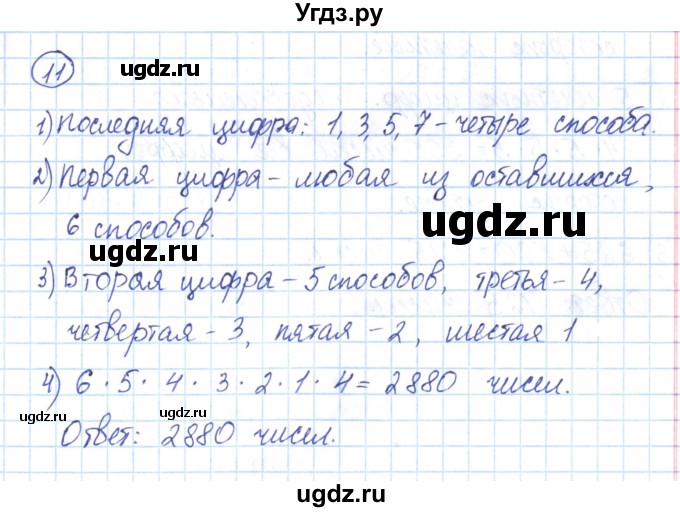 Угдз.ру
11
ugdz.ru
1) Последняя цифра: 1, 3, 5, 7 – четыре способа.
2) Первая цифра – любая из оставшихся,
6 способов.
ugdz.ru
ugdz.ru
3) Вторая цифра – 5 способов, третья – 4,
четвертая – 3, пятая – 2, шестая 1
ugdz.ru
4) 6 · 5 · 4 · 3 · 2 · 1 · 4 = 2880 чисел.
Ответ: 2880 чисел.
ugdz.ru
ugdz.ru